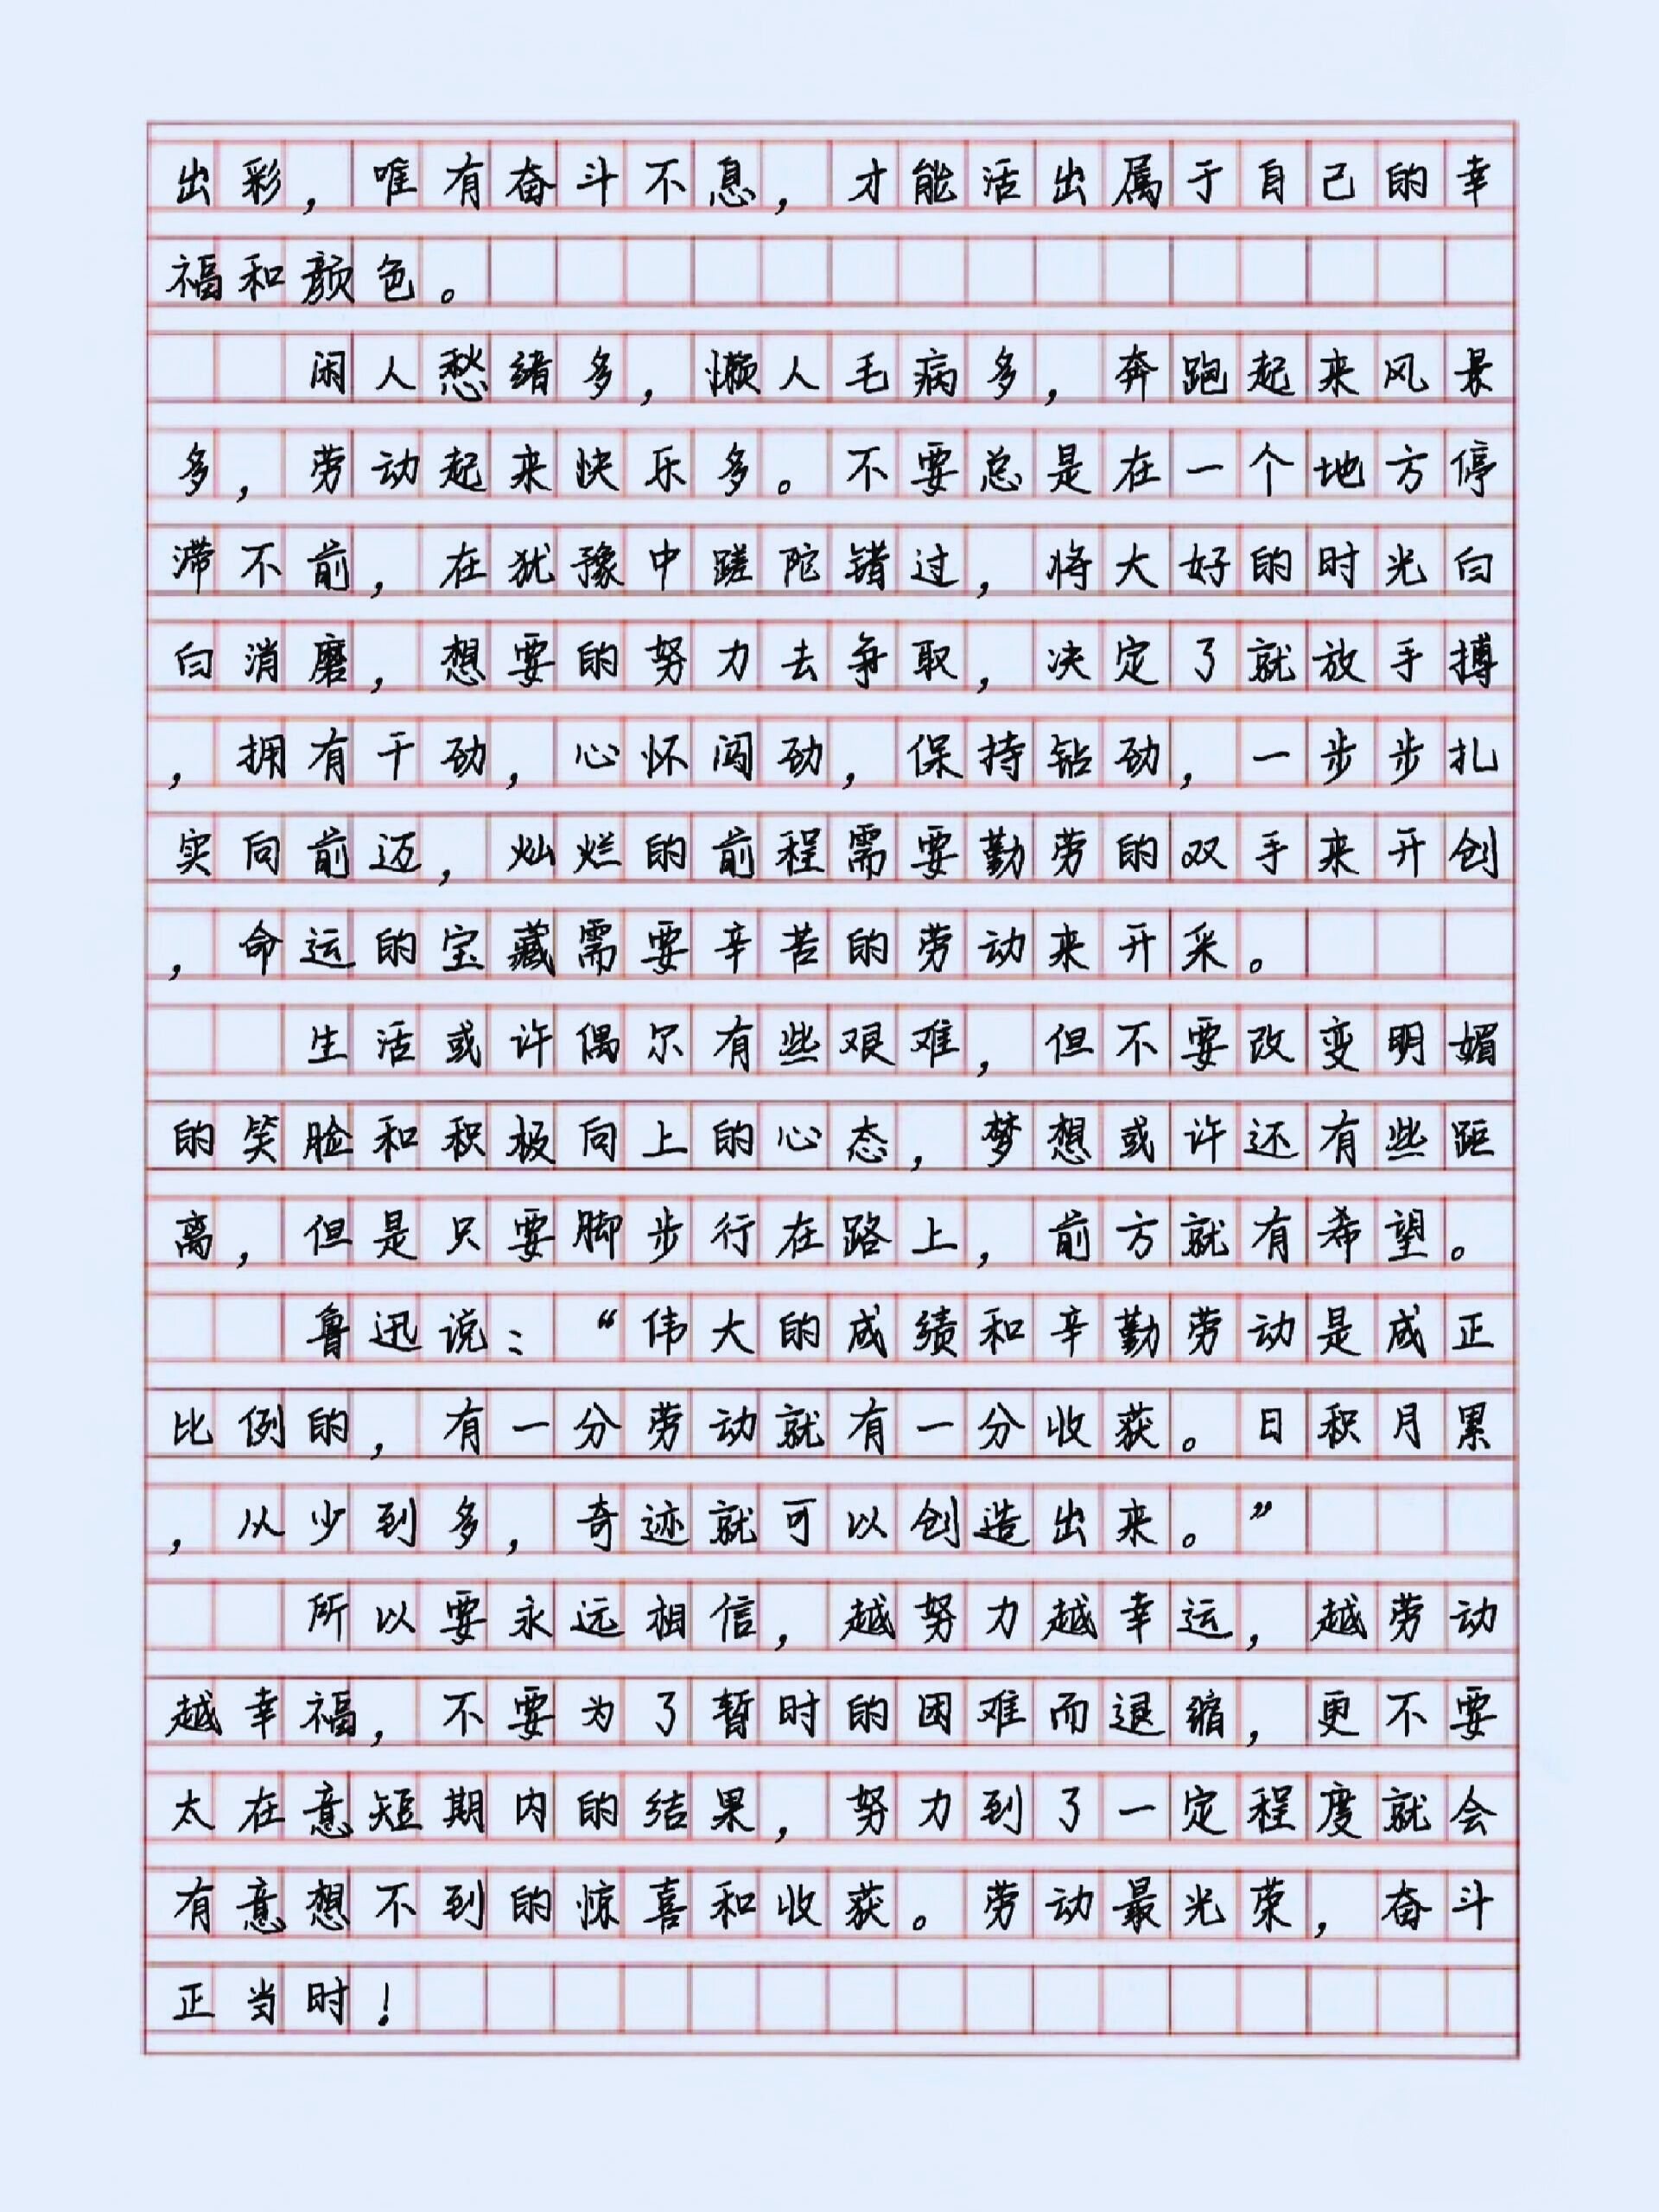 出彩，唯有奋斗不息，才能活出属于自己的幸
福和颜色。
闲人愁绪多，懒人毛病多，奔跑起来风景
多，劳动起来快乐多。不要总是在一个地方停
滞不前，在犹豫中蹉跎错过，将大好的时光白
白消磨，想要的努力去争取，决定了就放手搏
，拥有干劲，心怀闯劲，保持钻劲，一步步扎
实向前迈，灿烂的前程需要勤劳的双手来开创
，命运的宝藏需要辛苦的劳动来开采。
生活或许偶尔有些艰难，但不要改变明媚
的笑脸和积极向上的心态，梦想或许还有些距
离，但是只要脚步行在路上，前方就有希望。
鲁迅说：“伟大的成绩和辛勤劳动是成正
比例的，有一分劳动就有一分收获。日积月累
，从少到多，奇迹就可以创造出来。”
所以要永远相信，越努力越幸运，越劳动
越幸福，不要为了暂时的困难而退缩，更不要
太在意短期内的结果，努力到了一定程度就会
有意想不到的惊喜和收获。劳动最光荣，奋斗
正当时！